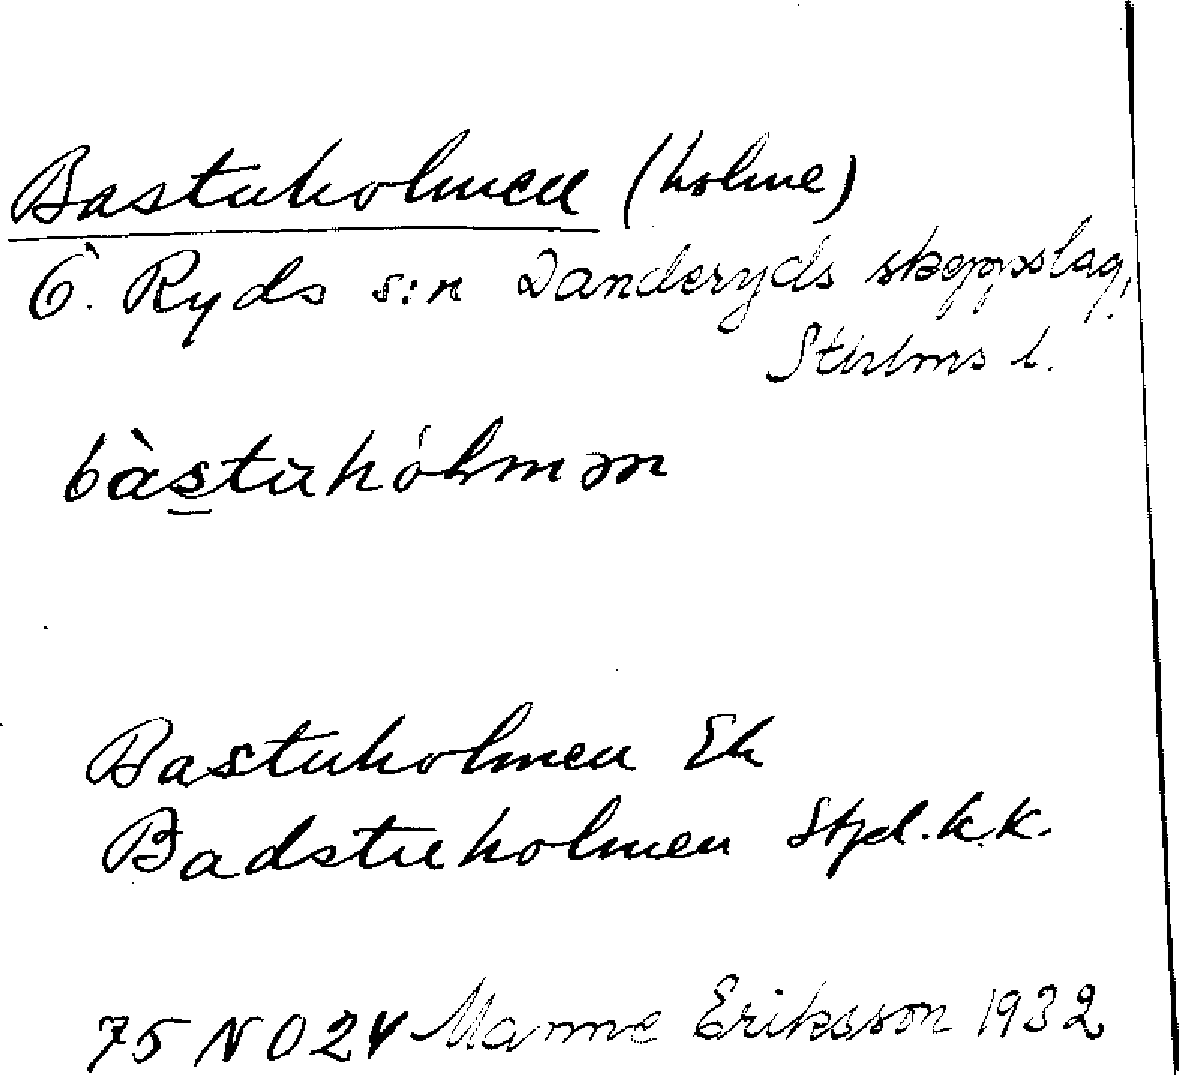 Bastuholmen (holme)
Ö. Ryds s:n Danderyds skeppslag,
Sthlms l.
bàstuhólmən
Bastuholmen Ek
Badstuholmen Hpl.k.k.
75 NO 24 Manne Eriksson 1932